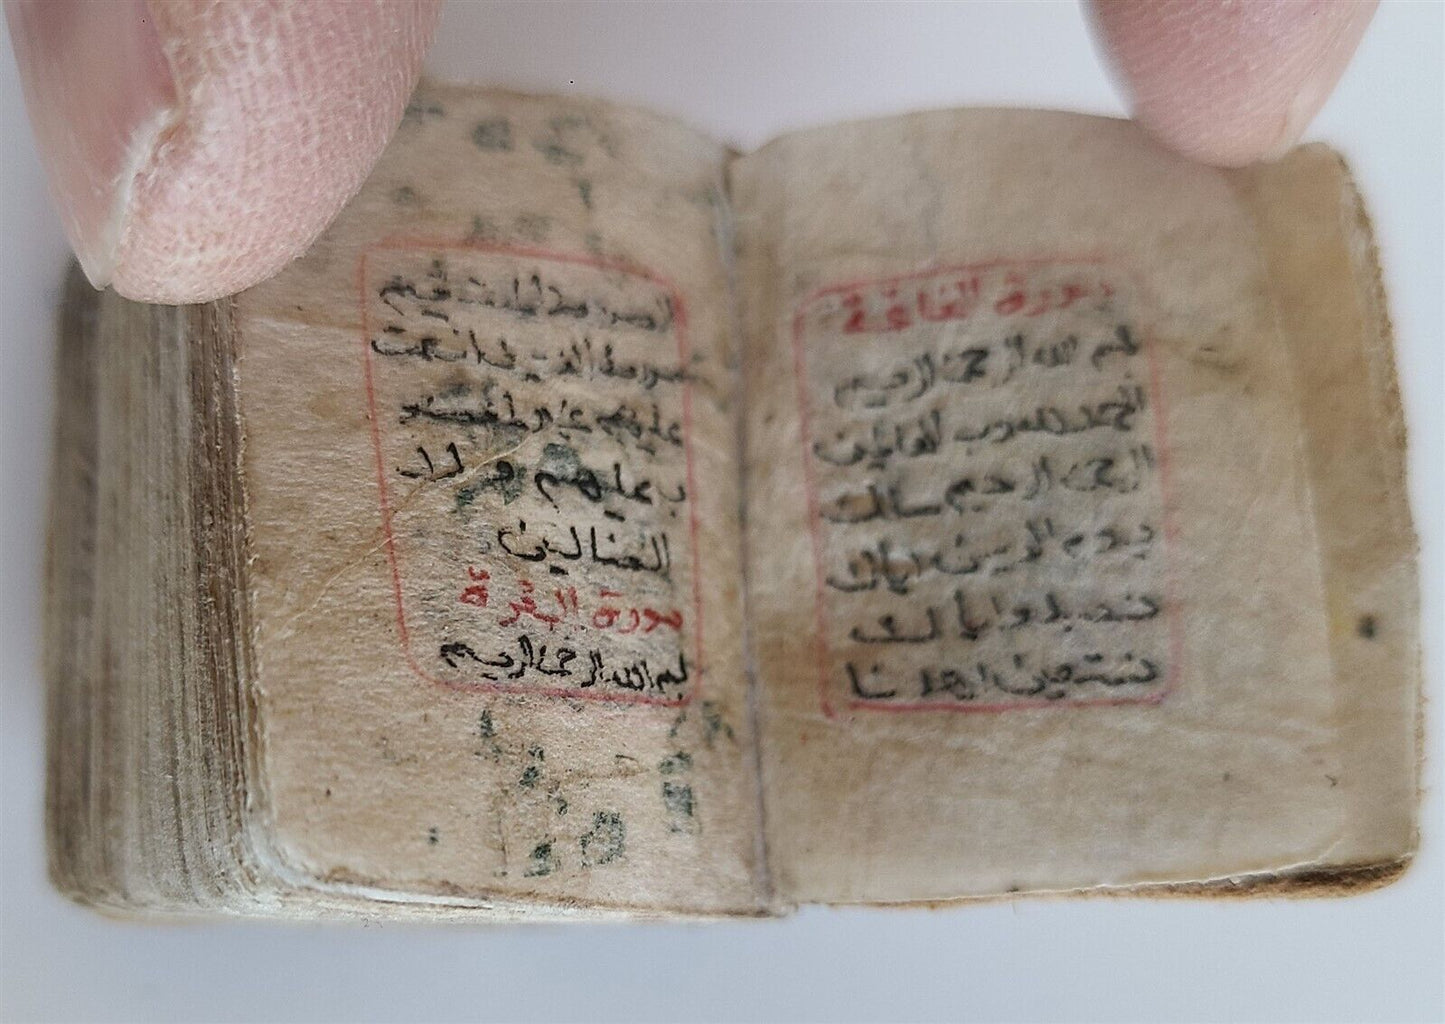 سورة الفاتحة
بسم الله الرحمن الرحيم
الحمد لله رب العلمين
الرحمن الرحيم مالك
يوم الدين اياك
نعبد واياك
نستعين اهدنا
الصراط المستقيم
صراط الذين انعمت
عليهم غير المغضو
ب عليهم ولا
الضالين
سورة البقرة
بسم الله الرحمن الرحيم